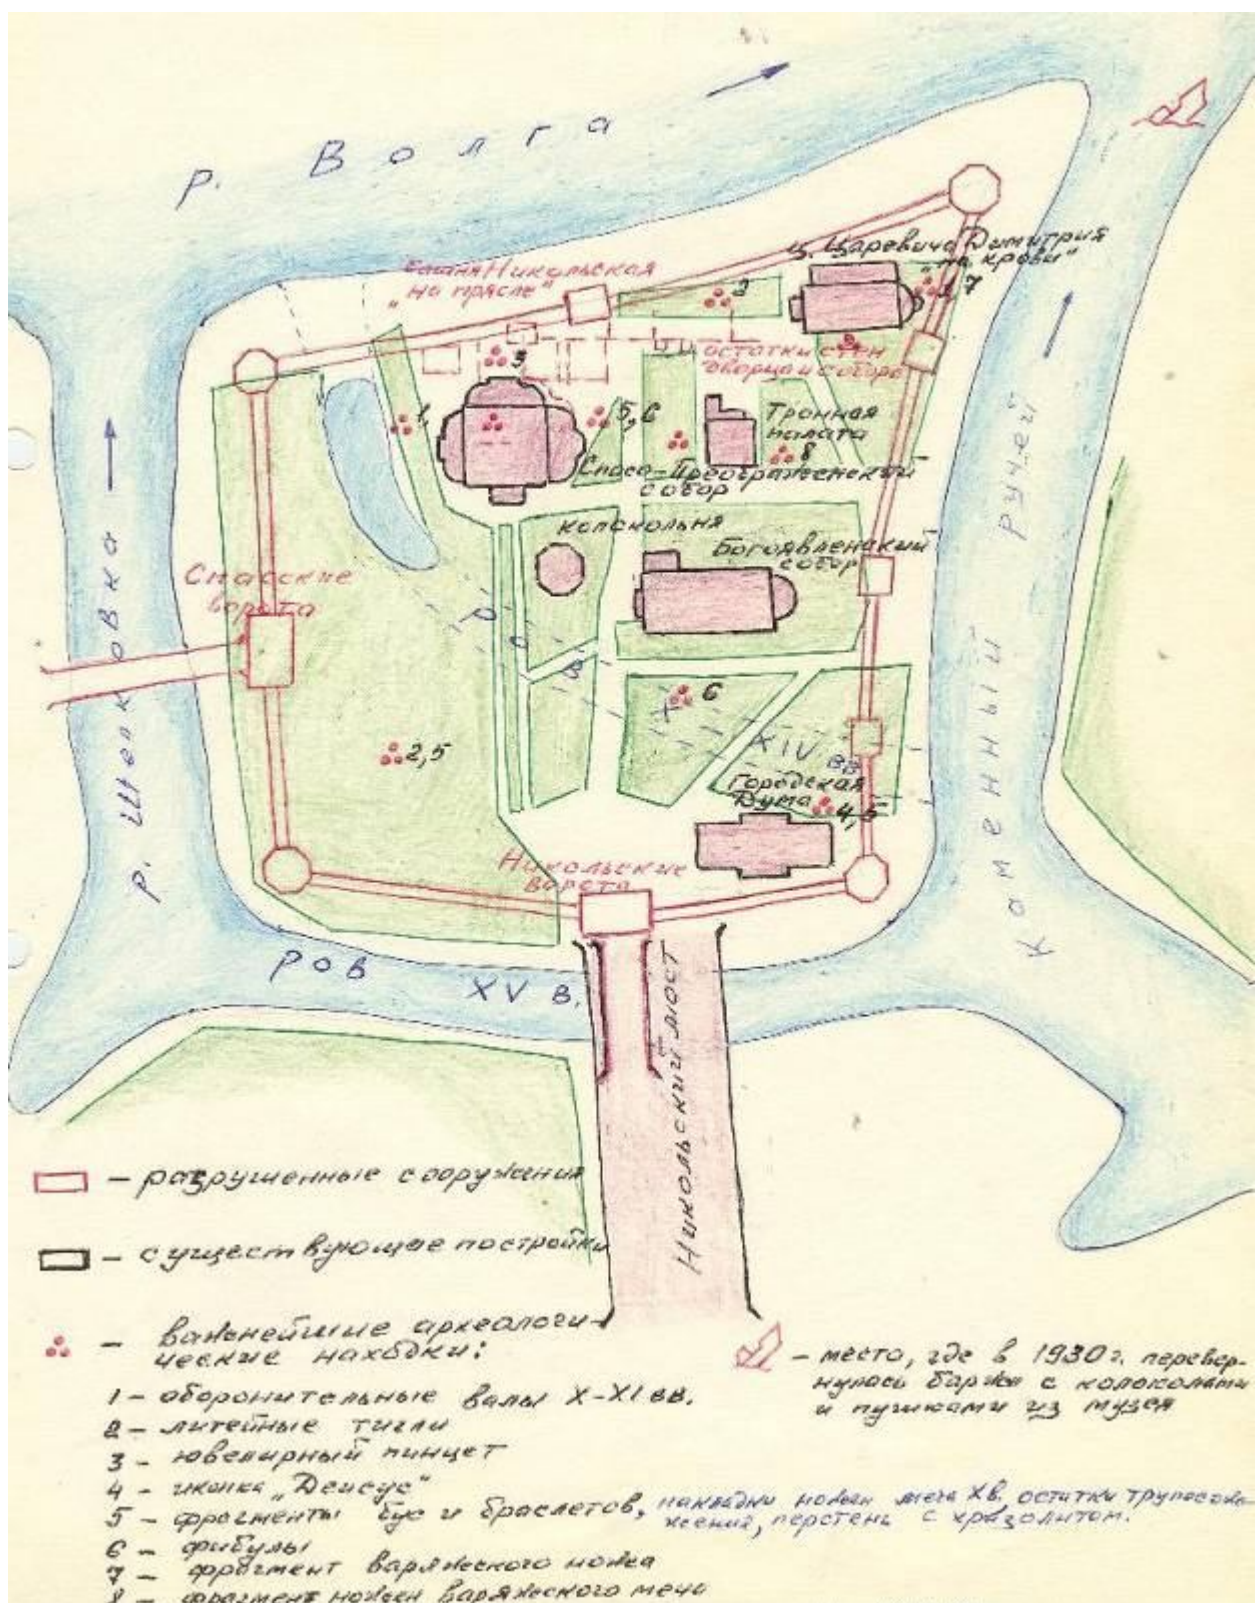 р. Волга
ц. Царевича Димитрия
"на крови"
башня Никольская
"на прясле"
2
7
3
остатки стен
дворца и собора
1,
5,6
Тронная
палата
8
Спасо-Преображенский
собор
колокольня
Богоявленский
собор
Спасские
ворота
р. Шелковка
Каменный ручей
Ров
X - XIV вв
6
2,5
Городская
Дума
4,5
Никольские
ворота
Ров XV в.
Никольский мост
– разрушенные сооружения
– существующие постройки
– важнейшие археологи-
ческие находки:
1 – оборонительные валы X-XI вв.
2 – литейные тигли
3 – ювелирный пинцет
4 – иконка „Деисус"
5 – фрагменты бус и браслетов, накладки ножен меча X в. остатки трупосож-
жения, перстень с хризолитом.
6 – фибулы
7 – фрагмент варяжского ножа
8 – фрагмент ножен варяжского меча
– место, где в 1930 г. перевер-
нулась баржа с колоколами
и пушками из музея